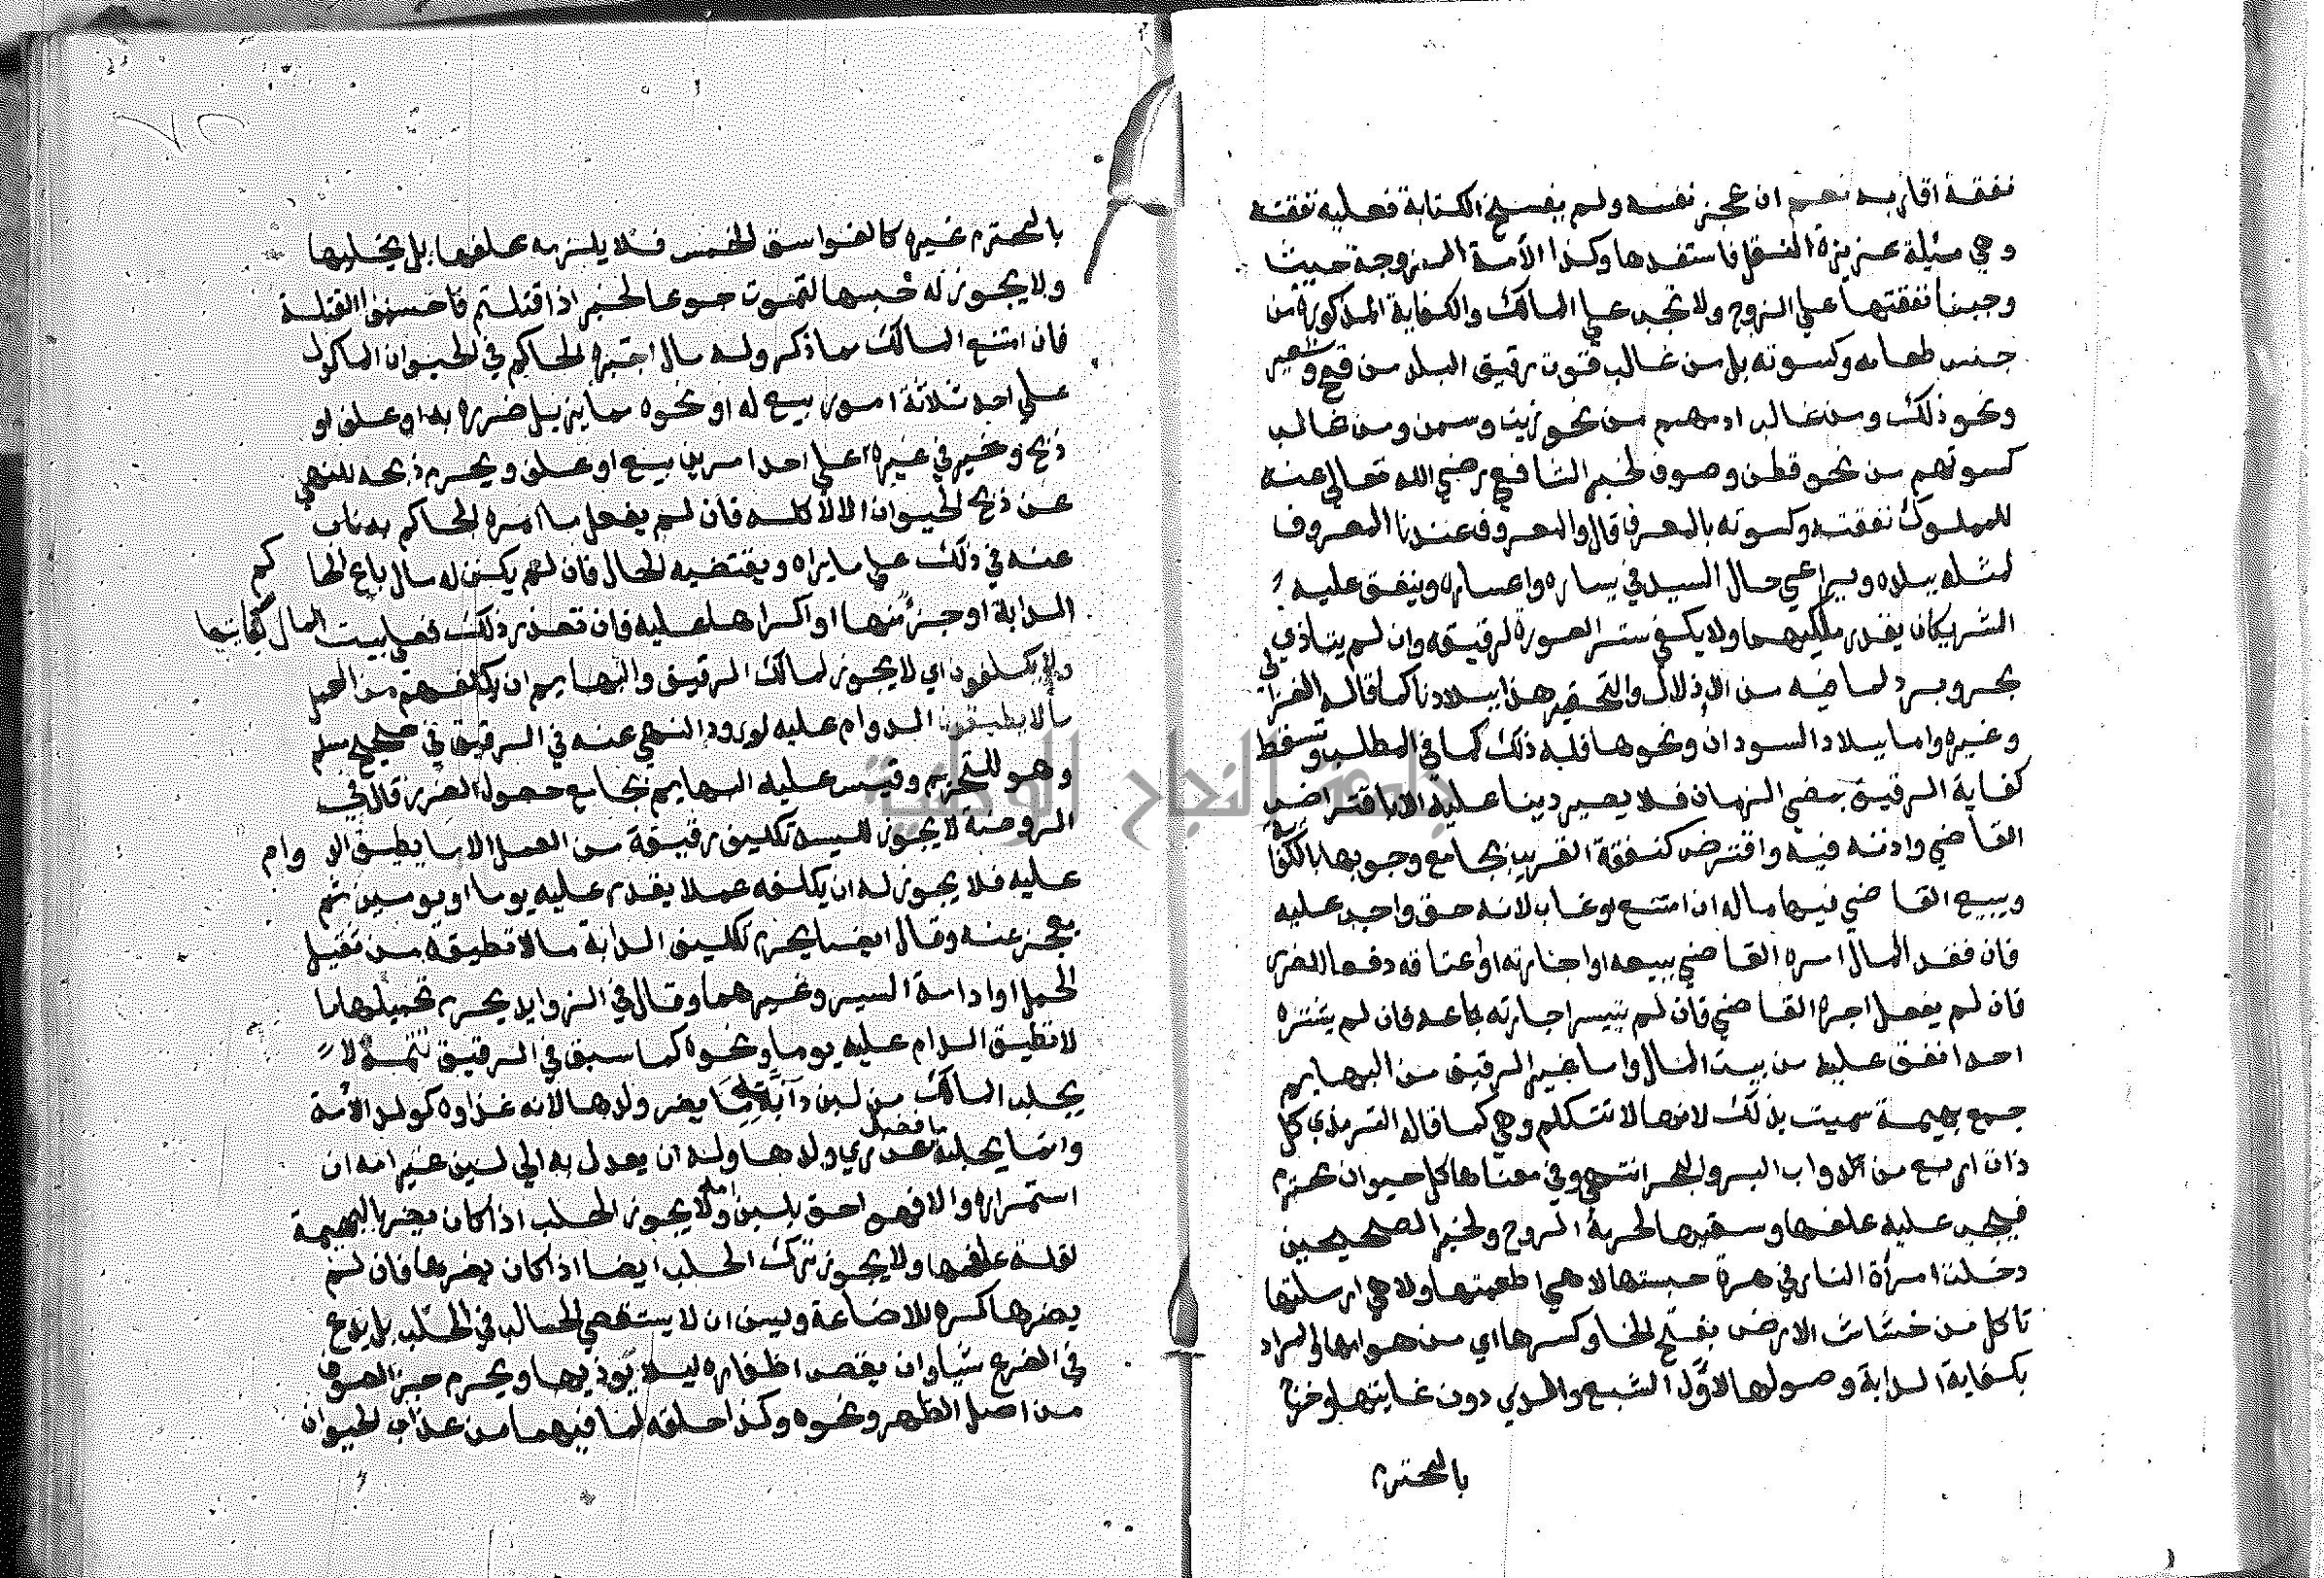 نفقة اقاربه نعم ان عجز نفسه ولم يفسخ الكتابة فعليه نفقته
وهي مسئلة عزيزة النقل فاستفدها وكذا الأمة المزوجة حيث
وجبنا نفقتها علي الزوج ولا تجب علي المالك والكفاية المذكورة من
جنس طعامه وكسوته بل من غالب قوت رقيق البلد من قمح وشعير
ونحو ذلك ومن غالب ادمهم من نحو زيت وسمن ومن غالب
كسوتهم من نحو قطن وصوف لخبر الشافعي رضي الله تعالي عنه
للمملوك نفقته وكسوته بالمعرف قال والمعروف عندنا المعروف
لمثله ببلده ويراعي حال السيد في يساره واعساره وينفق عليه
الشريكان بقدر ملكيهما ولا يكفي ستر العورة لرقيقه وان لم يتاذي
بحر وبرد لما فيه من الاذلال والتحقير هذا ببلادنا كما قاله الغزالي
وغيره واما ببلاد السودان ونحوها فله ذلك كما في المطلب وتسقط
كفاية الرقيق بمضي الزمان فلا يصير دينا عليه الا باقتراض
القاضي واذنه فيه واقترض كنفقة القريب بجامع وجوبها بالكفاية
ويبيع القاضي فيها ماله ان امتنع او غاب لانه حق واجب عليه
فان فقد المال امره القاضي ببيعه او اجارته او اعتاقه دفعا للضرر
فان لم يفعل اجره القاضي فان لم يتيسر اجارته باعه فان لم يشتره
احد انفق عليه من بيت المال واما غير الرقيق من البهايم
جمع بهيمة سميت بذلك لانها لا تتكلم وهي كما قاله الترمذي كل
ذات اربع من الدواب البر والبحر انتهي وفي معناها كل حيوان محترم
فيجب عليه علفها وسقيها لحرمة الروح ولخبر الصحيحين
دخلت امرأة النار في هرة حبستها لا هي اطعمتها ولا هي ارسلتها
تاكل من خشاش الارض بفتح الخا وكسرها اي من هوامها والمراد
بكفاية الدابة وصولها لاول الشبع والري دون غايتها وخرج
بالمحترم
بالمحترم غيره كالفواسق الخمس فلا يلزمه علفها بل يخليها
ولا يجوز له حبسها لتموت جوعا لخبر اذا قتلتم فاحسنوا القتلة
فان امتنع المالك مما ذكر وله مال اجبره الحاكم في الحيوان الماكول
علي احد ثلاثة امور بيع له او نحوه مما يزيل ضرره به او علف او
ذبح وخير في غيره علي احد امرين بيع او علف ويحرم ذبحه للنهي
عن ذبح الحيوان الا لاكله فان لم يفعل ما امره الحاكم به ناب
عنه في ذلك علي ما يراه ويقتضيه الحال فان لم يكن له مال باع الحاكم
الدابة او جزء منها او اكراها عليه فان تعذر ذلك فعلي بيت المال كفايتها
ولا يكلفون اي لا يجوز لمالك الرقيق والبهايم ان يكلفهم من العمل
مالا يطيقون الدوام عليه لورود النهي عنه في الرقيق في صحيح مسلم
وهو للتحريم وقيس عليه البهايم بجامع حصول الضرر قال في
الروضة لا يجوز للسيد تكليف رقيقة من العمل الا ما يطيق الدوام
عليه فلا يجوز له ان يكلفه عملا يقدر عليه يوما او يومين ثم
يعجز عنه وقال ايضا يحرم تكليف الدابة مالا تطيقه من تقيل
الحمل او ادامة السير وغيرهما وقال في الزوايد يحرم تحميلها ما
لا تطيق الدام عليه يوما ونحوه كما سبق في الرقيق تتمة لا
يحلب المالك من لبن دآبة ما يضر ولدها لانه غذاوه كولد الأمة
وانما يحلب ما فضل عن ري ولدها وله ان يعدل به الي لبن غير امه ان
استمراه والا فهو احق بلبن امه ولا يجوز الحلب اذا كان يضر البهيمة
لقلة علفها ولا يجوز ترك الحلب ايضا اذا كان يضرها فان لم
يضرها كره للاضاعة ويسن ان لا يستقصي الحالب في الحلب بل يدع
في الضرع شيا وان يقص اظفاره ليلا يوذيها ويحرم جز الصوف
من اصل الظهر ونحوه وكذا حلقه لما فيهما من عذاب الحيوان
جامعة النجاح الوطنية